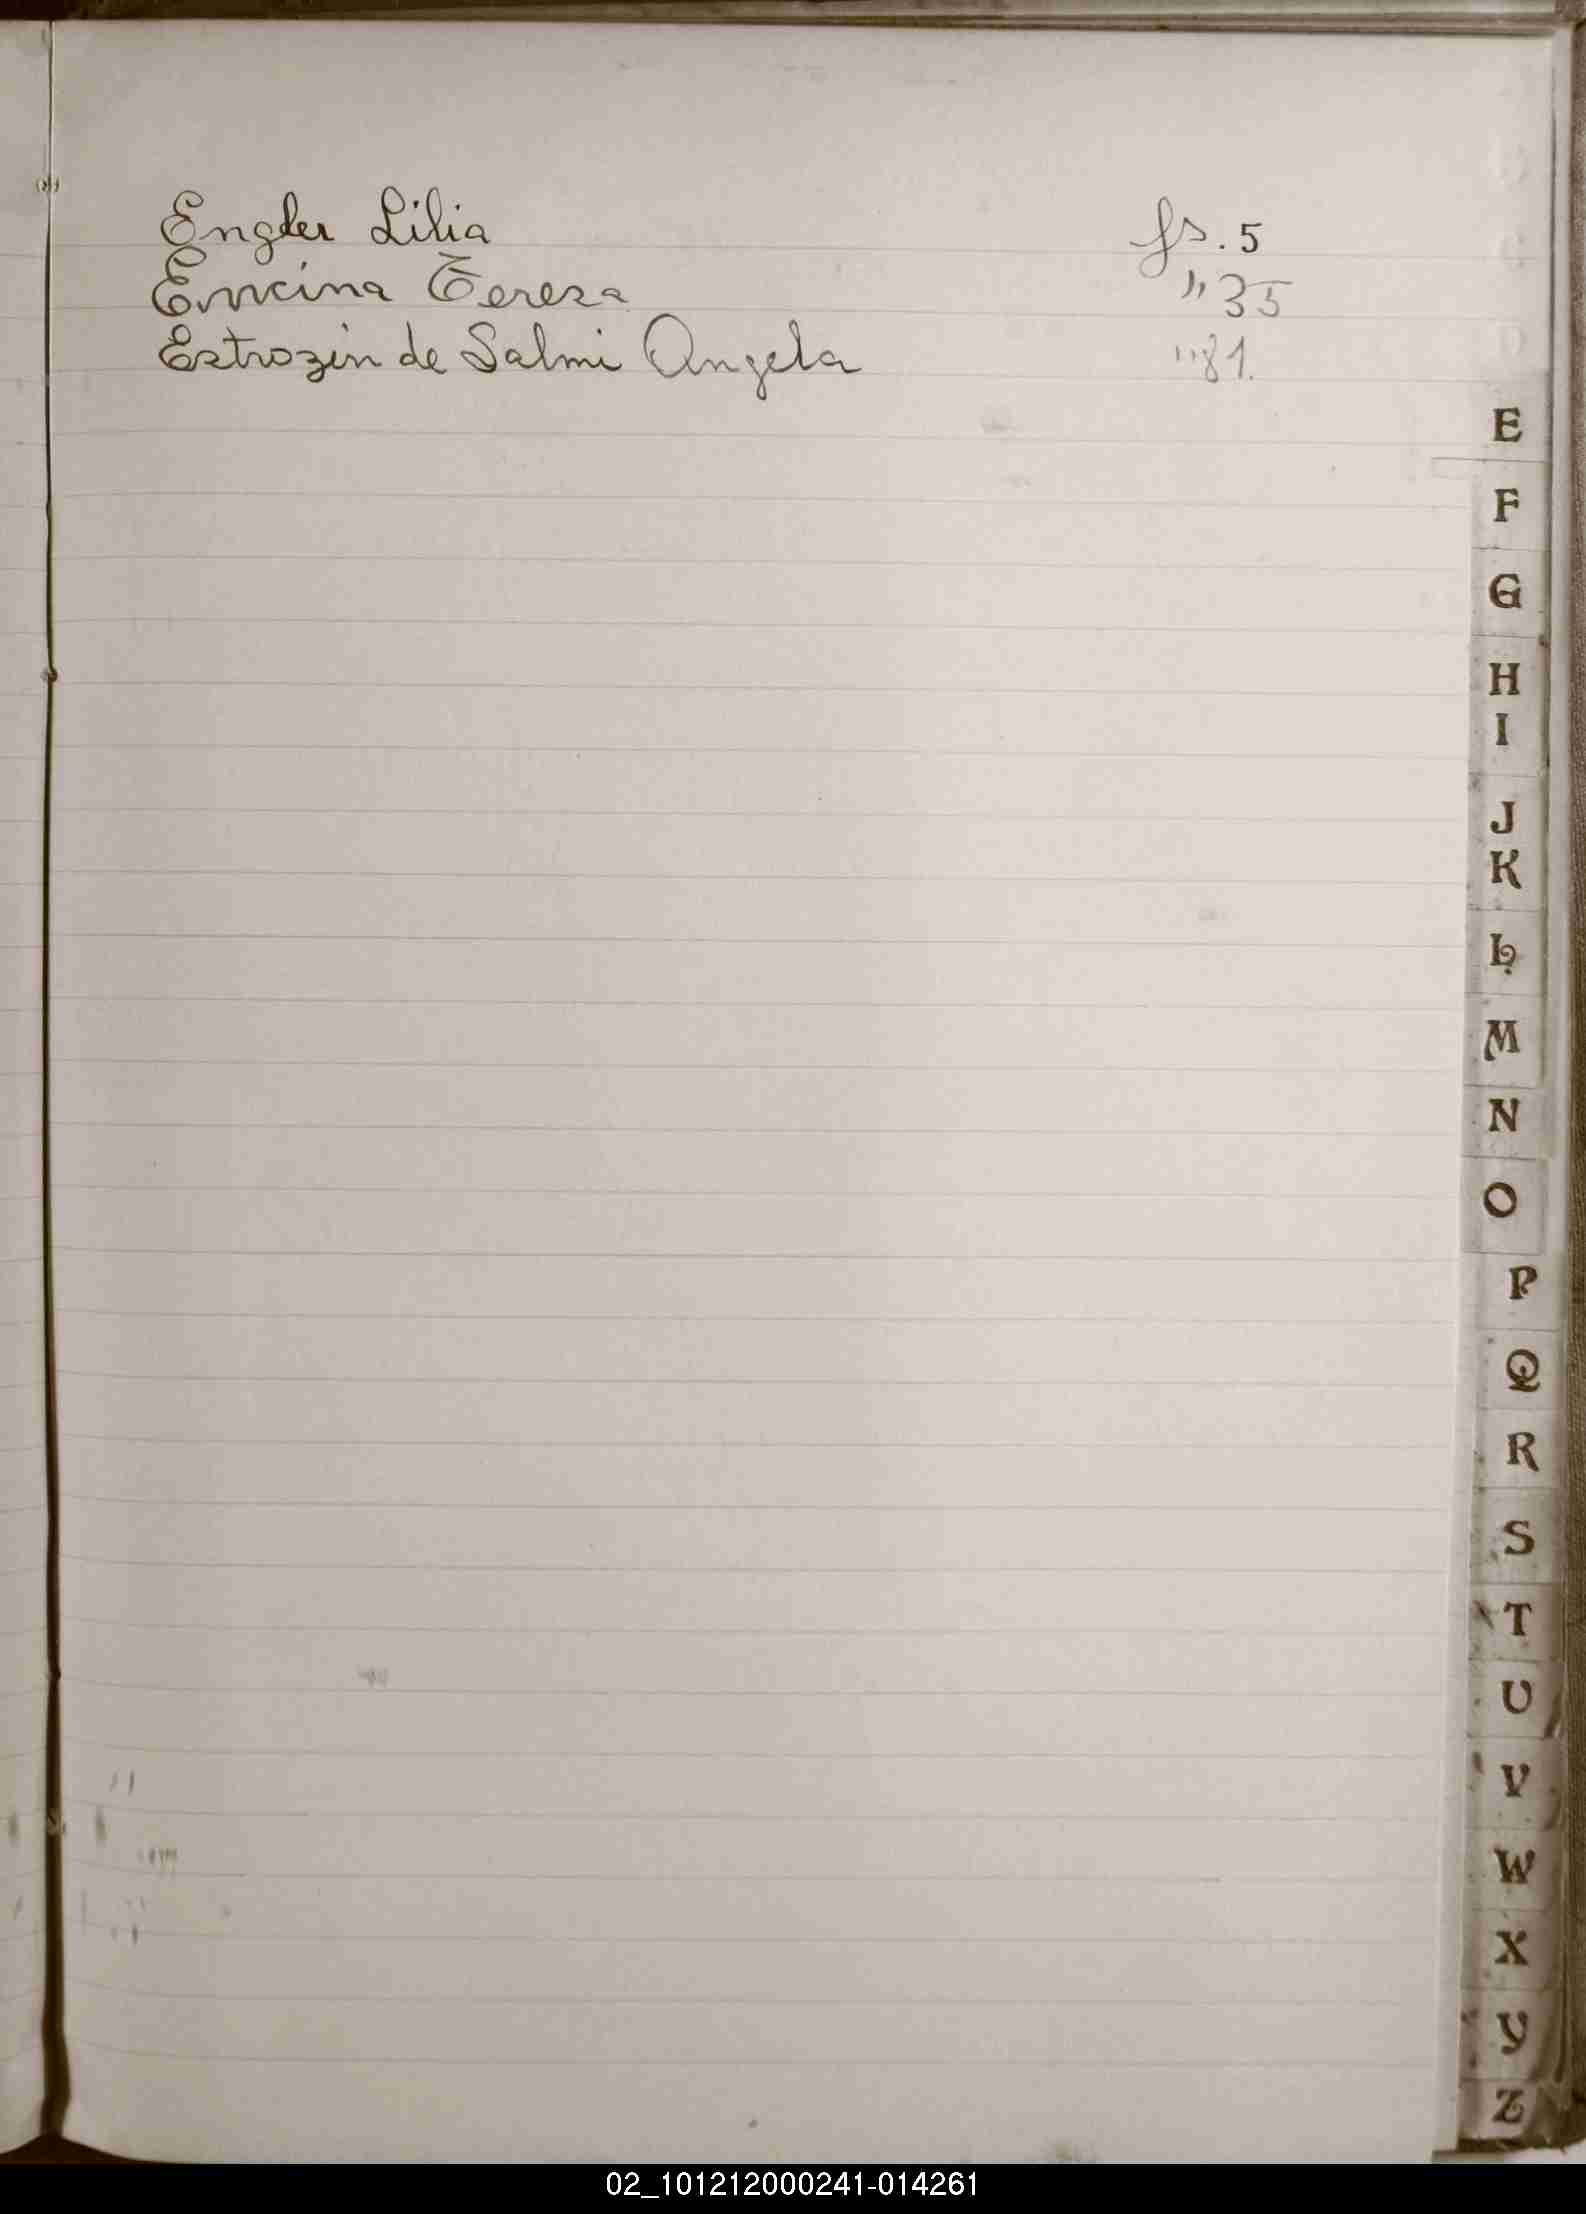 Engler Lilia fs. 5
Encina Tereza " 35
Estrozin de Salmi Angela " 81.
E
F
G
H
I
J
K
L
M
N
O
P
Q
R
S
T
U
V
W
X
Y
Z
02_101212000241-014261